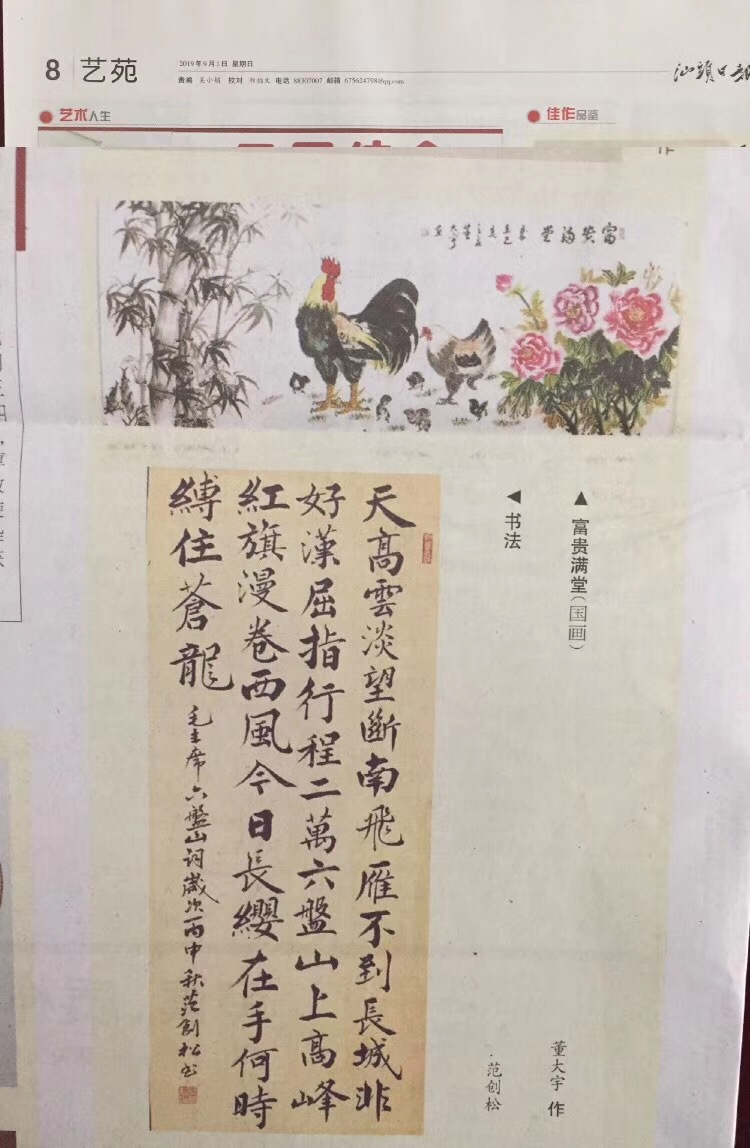 8 艺苑
2019年9月1日 星期日
责编 吴小娟 校对 电话 88307007 邮箱 675624798@qq.com
汕頭日報
艺术人生
佳作品鉴
作
富贵满堂
▲富贵满堂（国画）
董大宇 作
◀书法
·范创松
天高雲淡望斷南飛雁不到長城非
好漢屈指行程二萬六盤山上高峰
紅旗漫卷西風今日長纓在手何時
縛住蒼龍
毛主席六盤山詞歲次丙申秋范創松书